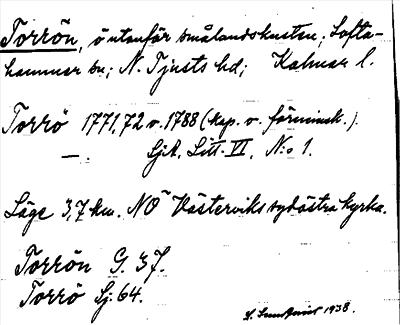 Torrön, ö utanför smålandskusten, Lofta-
hammar sn; N. Tjusts hd; Kalmar l.
Torrö 1771,72 o. 1788 (kap. v. förminsk.).
— . SjA, Litt. VI, N:o 1.
Läge 3,7 km. NO Västerviks sydöstra kyrka.
Torrön G. 37.
Torrö Sj. 64.
1938.